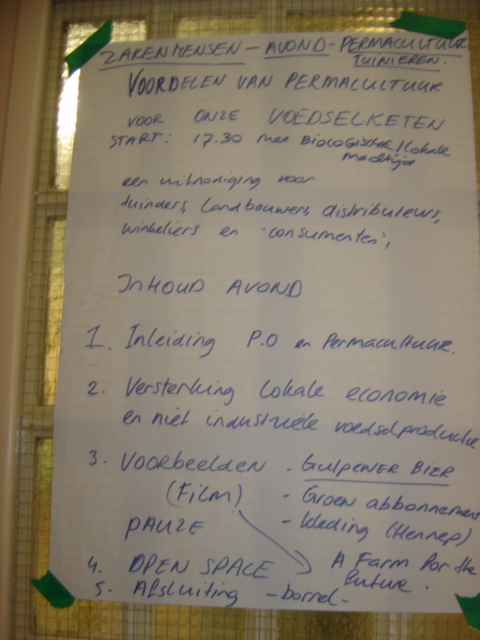 ZAKENMENSEN - AVOND - PERMACULTUUR
TUINIEREN.
VOORDELEN VAN PERMACULTUUR
VOOR ONZE VOEDSELKETEN
START: 17.30 met BIOLOGISCHE/lokale
maaltijd
een uitnodiging voor
tuinders, landbouwers, distributeurs,
winkeliers en 'consumenten',
INHOUD AVOND
1. Inleiding P.O en Permacultuur.
2. Versterking lokale economie
en niet industriële voedselproductie
3. VOORBEELDEN - GULPENER BIER
(FILM) - Groen abbonnement
PAUZE - kleding (Hennep)
4. OPEN SPACE A Farm for the
5. Afsluiting -borrel- future.